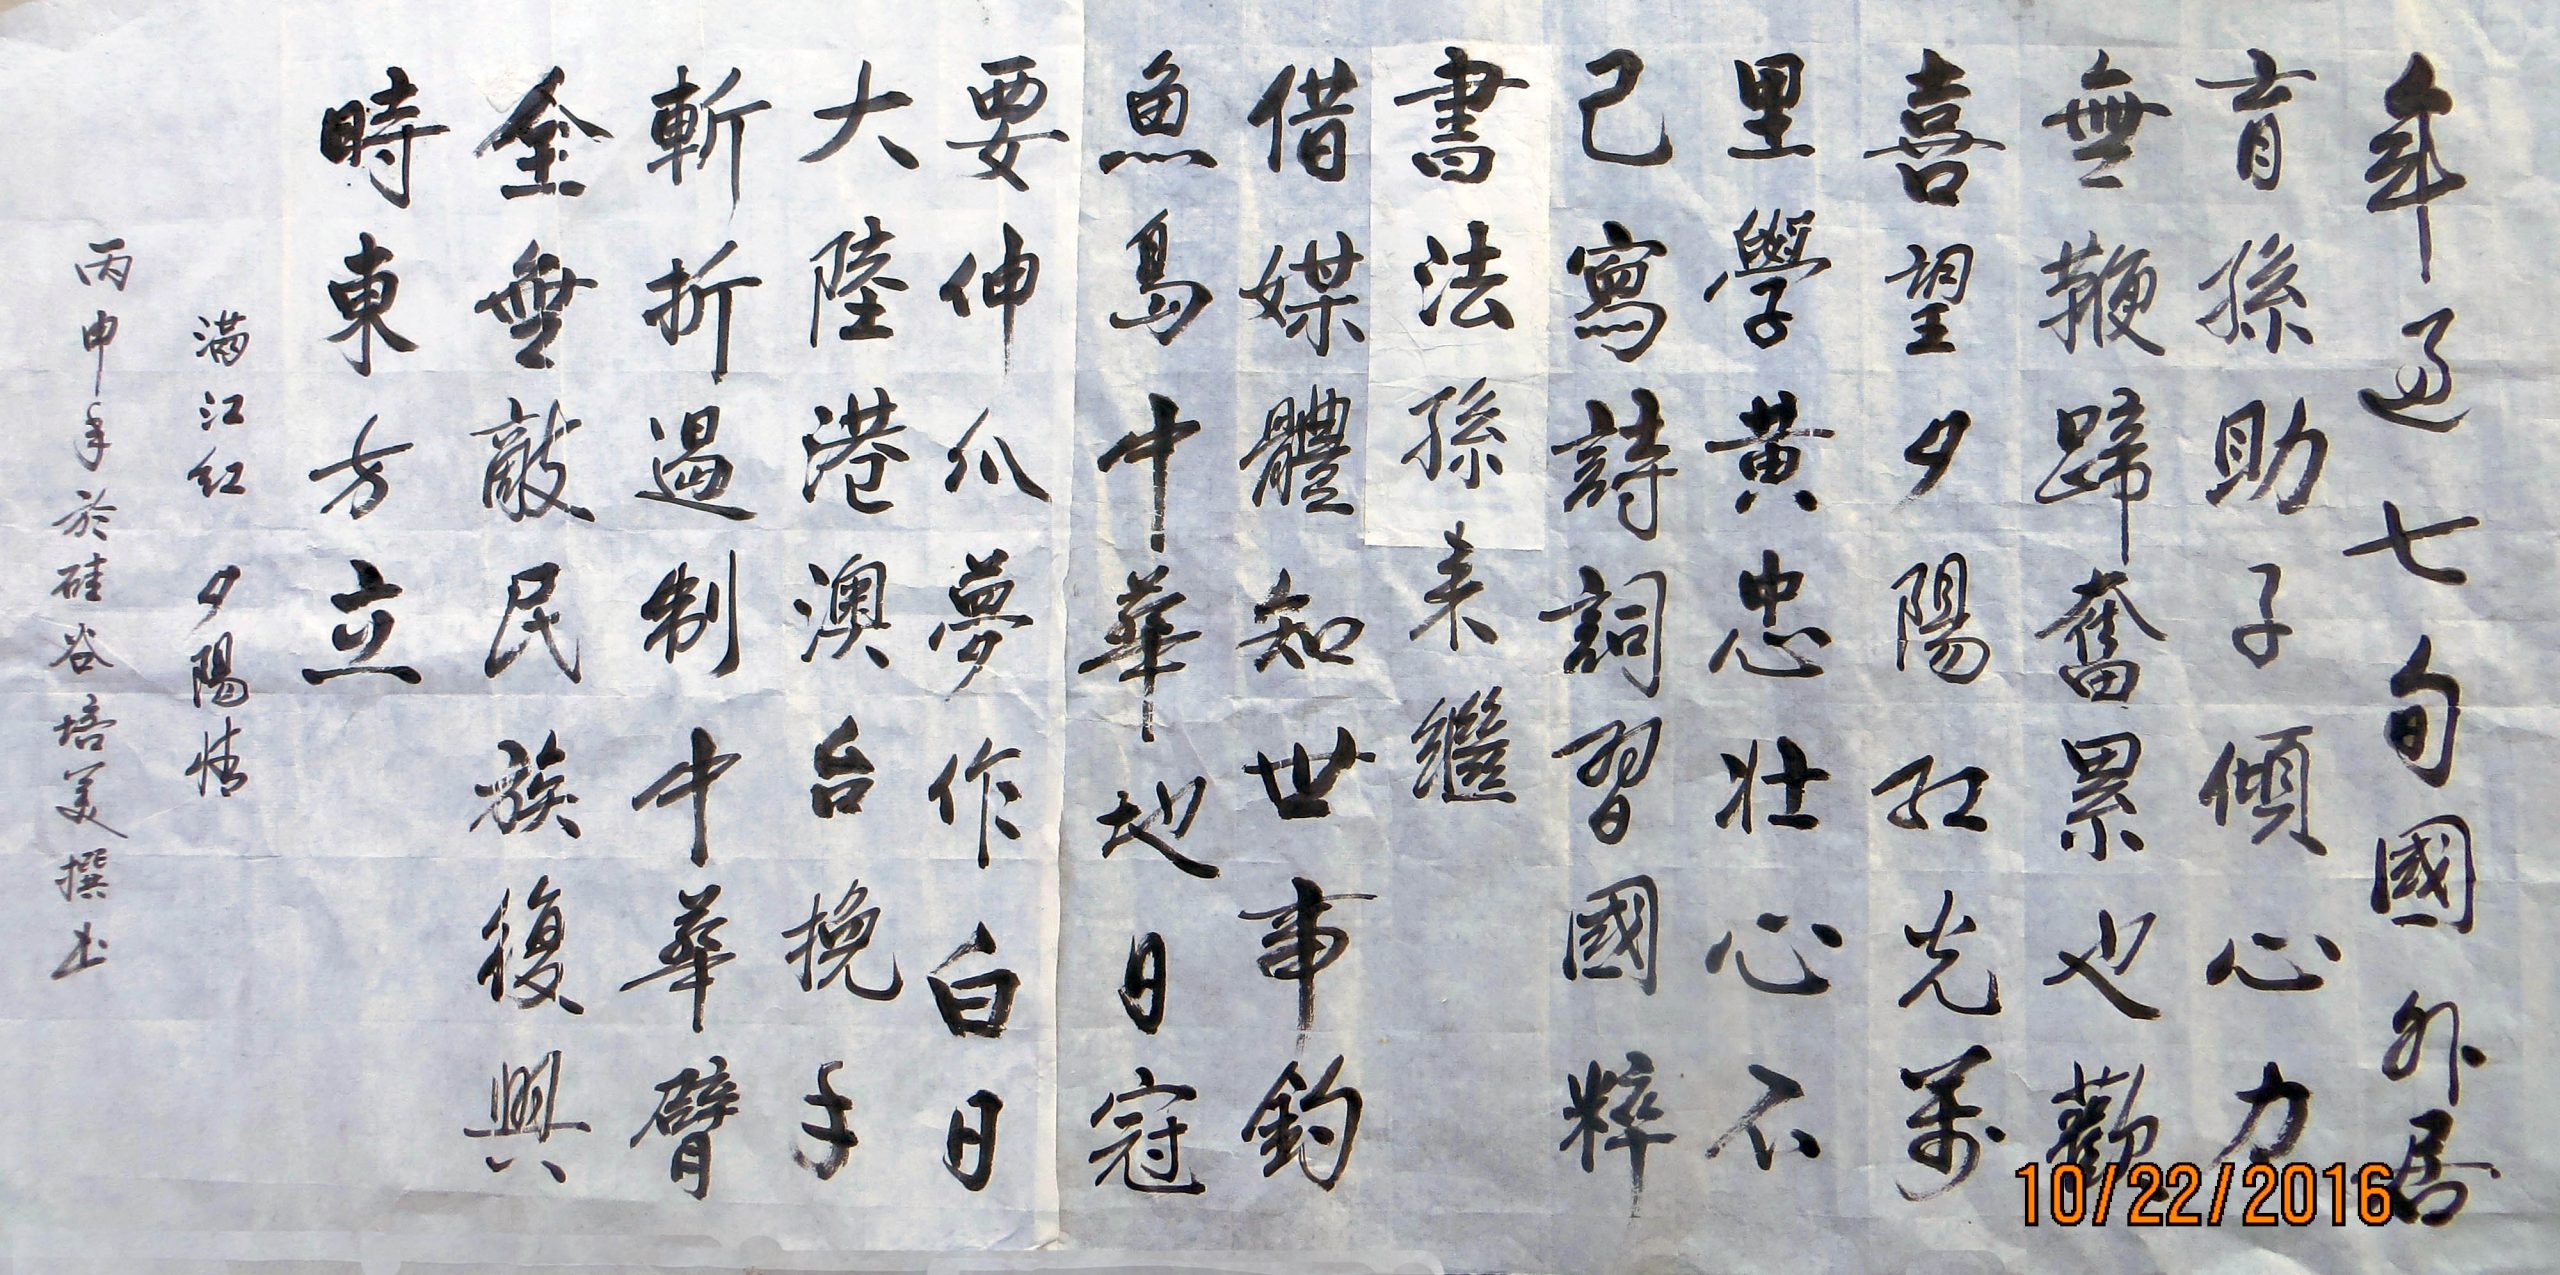 年過七旬國外居
育孫助子傾心力
無鞭蹄奮累也歡
喜詞望夕陽紅光萬
里學黃忠壯心不
已寫詩詞習國粹
書法孫來繼
借媒體知世事釣
魚島中華地日冠
要伸爪夢作白日
大陸港澳台挽手
斬折遏制中華臂
金無敵民族復興
時東方立
滿江紅 夕陽情
丙申年於硅谷培美撰书
10/22/2016